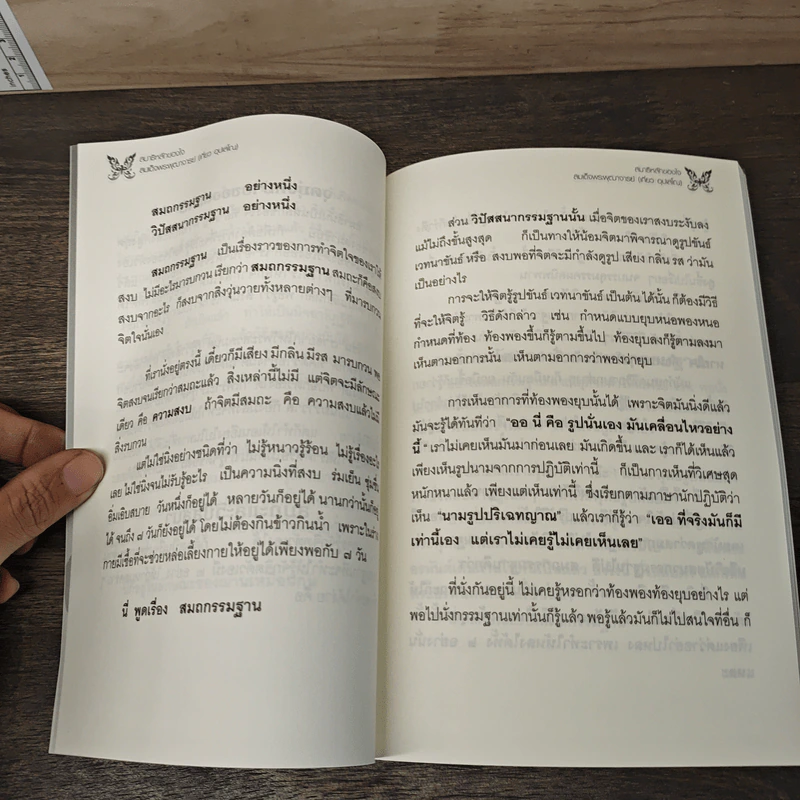 สมาธิหลักของใจ
สมเด็จพระพุฒาจารย์ (เกี่ยว อุปเสโณ)
สมถกรรมฐาน อย่างหนึ่ง
วิปัสสนากรรมฐาน อย่างหนึ่ง
สมถกรรมฐาน เป็นเรื่องราวของการทำจิตใจของเราให้
สงบ ไม่มีอะไรมารบกวน เรียกว่า สมถกรรมฐาน สมถะก็คือสงบ
สงบจากอะไร ก็สงบจากสิ่งวุ่นวายทั้งหลายต่างๆ ที่มารบกวน
จิตใจนั่นเอง
ที่เรานั่งอยู่ตรงนี้ เดี๋ยวก็มีเสียง มีกลิ่น มีรส มารบกวน พอ
จิตสงบจนเรียกว่าสมถะแล้ว สิ่งเหล่านี้ไม่มี แต่จิตจะมีลักษณะ
เดียว คือ ความสงบ ถ้าจิตมีสมถะ คือ ความสงบแล้วไม่มี
สิ่งรบกวน
แต่ไม่ใช่นิ่งอย่างชนิดที่ว่า ไม่รู้หนาวรู้ร้อน ไม่รู้เรื่องอะไร
เลย ไม่ใช่นิ่งจนไม่รับรู้อะไร เป็นความนิ่งที่สงบ ร่มเย็น ชุ่มชื่น
อิ่มเอิบสบาย วันหนึ่งก็อยู่ได้ หลายวันก็อยู่ได้ นานกว่านั้นก็อยู่
ได้ จนถึง ๗ วันก็ยังอยู่ได้ โดยไม่ต้องกินข้าวกินน้ำ เพราะในร่าง
กายมีเชื้อที่จะช่วยหล่อเลี้ยงกายให้อยู่ได้เพียงพอกับ ๗ วัน
นี่ พูดเรื่อง สมถกรรมฐาน
สมาธิหลักของใจ
สมเด็จพระพุฒาจารย์ (เกี่ยว อุปเสโณ)
ส่วน วิปัสสนากรรมฐานนั้น เมื่อจิตของเราสงบระงับลง
แม้ไม่ถึงขั้นสูงสุด ก็เป็นทางให้น้อมจิตมาพิจารณาดูรูปขันธ์
เวทนาขันธ์ หรือ สงบพอที่จิตจะมีกำลังดูรูป เสียง กลิ่น รส ว่ามัน
เป็นอย่างไร
การจะให้จิตรู้รูปขันธ์ เวทนาขันธ์ เป็นต้น ได้นั้น ก็ต้องมีวิธี
ที่จะให้จิตรู้ วิธีดังกล่าว เช่น กำหนดแบบยุบหนอพองหนอ
กำหนดที่ท้อง ท้องพองขึ้นก็รู้ตามขึ้นไป ท้องยุบลงก็รู้ตามลงมา
เห็นตามอาการนั้น เห็นตามอาการว่าพองว่ายุบ
การเห็นอาการที่ท้องพองยุบนั้นได้ เพราะจิตมันนิ่งดีแล้ว
มันจะรู้ได้ทันทีว่า "ออ นี่ คือ รูปนั่นเอง มันเคลื่อนไหวอย่าง
นี้ " เราไม่เคยเห็นมันมาก่อนเลย มันเกิดขึ้น และ เราก็ได้เห็นแล้ว
เพียงเห็นรูปนามจากการปฏิบัติเท่านี้ ก็เป็นการเห็นที่วิเศษสุด
หนักหนาแล้ว เพียงแต่เห็นเท่านี้ ซึ่งเรียกตามภาษานักปฏิบัติว่า
เห็น "นามรูปปริเฉทญาณ" แล้วเราก็รู้ว่า "เออ ที่จริงมันก็มี
เท่านี้เอง แต่เราไม่เคยรู้ไม่เคยเห็นเลย"
ที่นั่งกันอยู่นี้ ไม่เคยรู้หรอกว่าท้องพองท้องยุบอย่างไร แต่
พอไปนั่งกรรมฐานเท่านั้นก็รู้แล้ว พอรู้แล้วมันก็ไม่ไปสนใจที่อื่น ก็